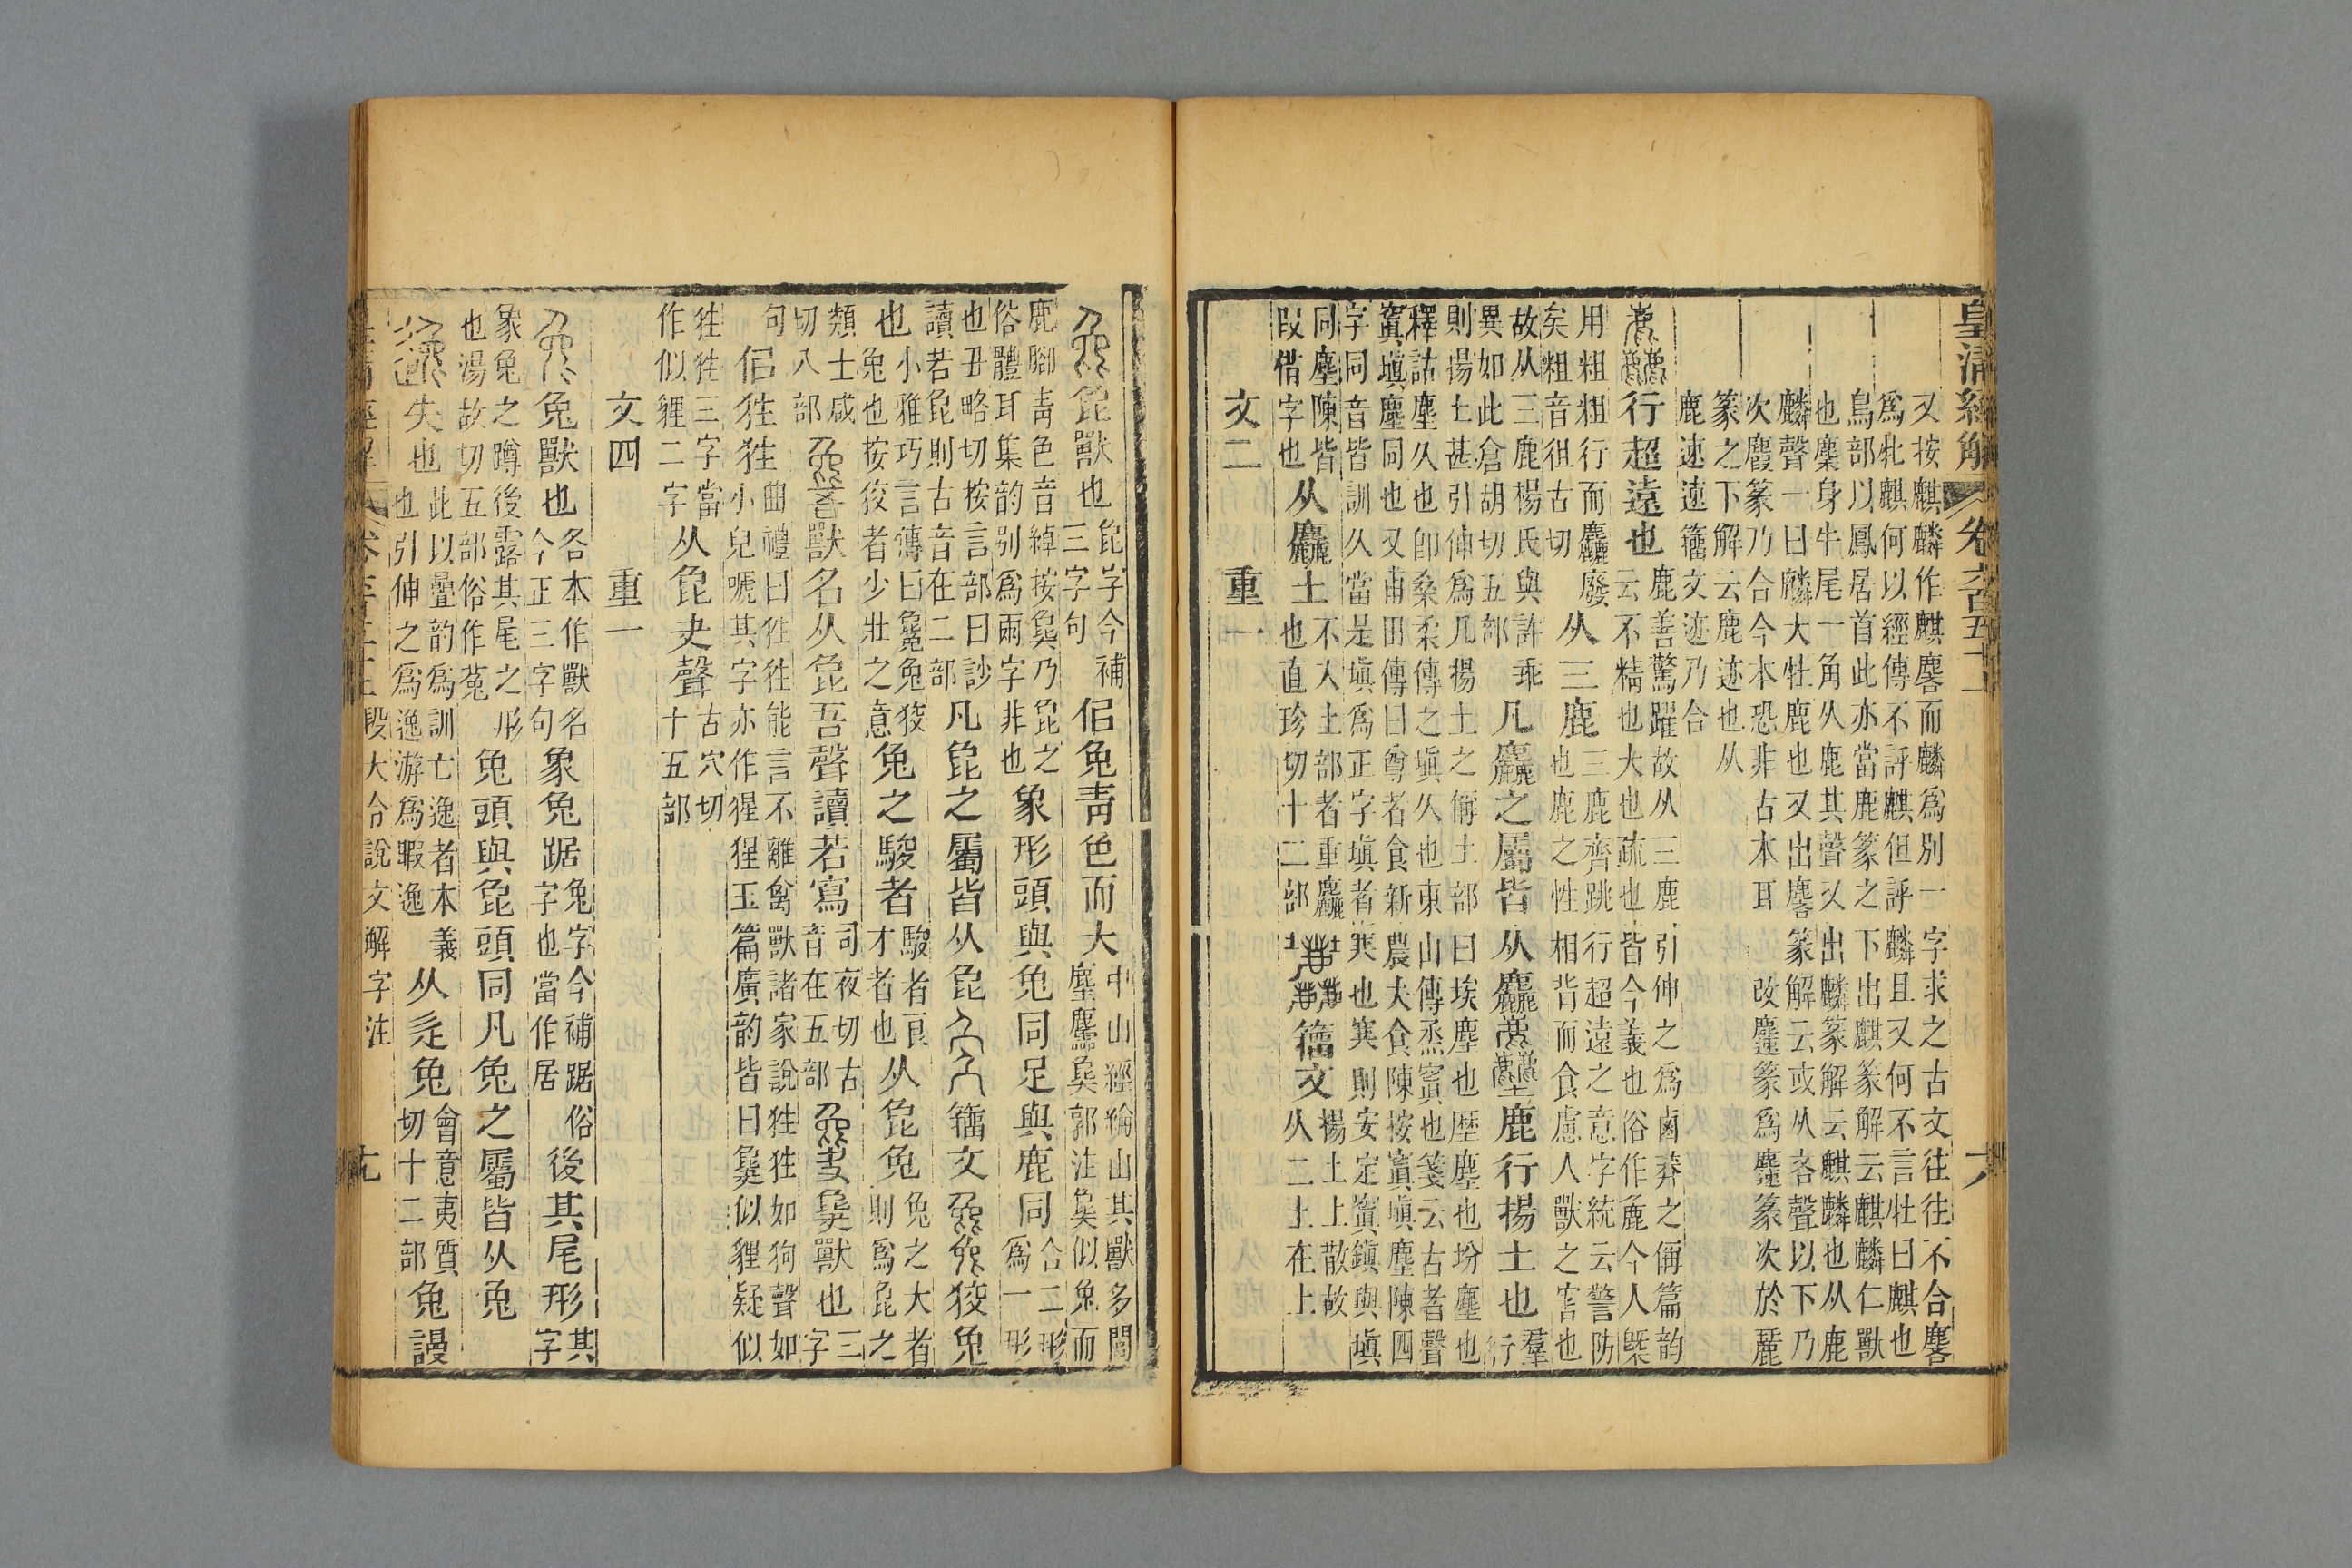 皇清經解
又按麒麟作麒麐而麟爲別一字求之古文往往不合麐
爲牝麒何以經傳不評麒但評麟且又何不言牡曰麒也
鳥部以鳳居首此亦當鹿篆之下出麒篆解云麒麟仁獸
也麋身牛尾一角从鹿其聲又出麟篆解云麒麟也从鹿
麟聲一曰麟大牡鹿也又出麐篆解云或从吝聲以下乃
次麚篆乃合今本恐非古本耳
改麤篆爲麤篆次於麗
篆之下解云鹿迹也从
鹿速速籒文迹乃合
行超遠也
鹿善驚躍故从三鹿引伸之爲鹵莽之偁篇韵
云不精也大也疏也皆今義也俗作麁今人槩
用粗粗行而麤廢
矣粗音徂古切
从三鹿
三鹿齊跳行超遠之意字統云警防
也鹿之性相背而食慮人獸之害也
故从三鹿楊氏與許乖
異如此倉胡切五部
凡麤之屬皆从麤
鹿行揚土也
羣行
則揚土甚引伸爲凡揚土之偁土部曰埃塵也㙠塵也坋塵也
釋詁塵久也卽桑柔傳之塡久也東山傳烝窴也箋云古者聲
窴塡塵同也又甫田傳曰尊者食新農夫食陳按窴塡塵陳四
字同音皆訓久當是塡爲正字塡者窴也窴則安定窴鎭與塡
同塵陳皆
叚借字也
从麤土
不入土部者重麤
也直珍切十二部
籒文
揚土上散故
从二土在上
文二　重一
㲋獸也
㲋字今補
三字句
佀兔靑色而大
中山經綸山其獸多閭
麈麢㲋郭注㲋似兔而
鹿腳靑色音綽按㲋乃㲋之
俗體耳集韵別爲兩字非也
象形頭與兔同足與鹿同
合二形
爲一形
也丑略切按言部曰訬
讀若㲋則古音在二部
凡㲋之屬皆从㲋
籒文
狡兔
也
小雅巧言傳曰毚兔狡
兔也按狡者少壯之意
兔之駿者
駿者良
才者也
从㲋兔
兔之大者
則爲㲋之
類士咸
切八部
獸名从㲋吾聲讀若寫
司夜切古
音在五部
㲋獸也
三字
句
佀狌狌
曲禮曰狌狌能言不離禽獸諸家說狌狌如狗聲如
小兒嗁其字亦作猩猩玉篇廣韵皆曰㚟似貍疑似
狌狌三字當
作似貍二字
从㲋夬聲
古穴切
十五部
文四　重一
兔獸也
各本作獸名
今正三字句
象兔踞
兔字今補踞俗
字也當作居
後其尾形
其字
象兔之蹲後露其尾之形
也湯故切五部俗作菟
兔頭與㲋頭同凡兔之屬皆从兔
失也
此以疊韵爲訓亡逸者本義
也引伸之爲逸游爲暇逸
从辵兔
會意夷質
切十二部
兔謾
段大令說文解字注